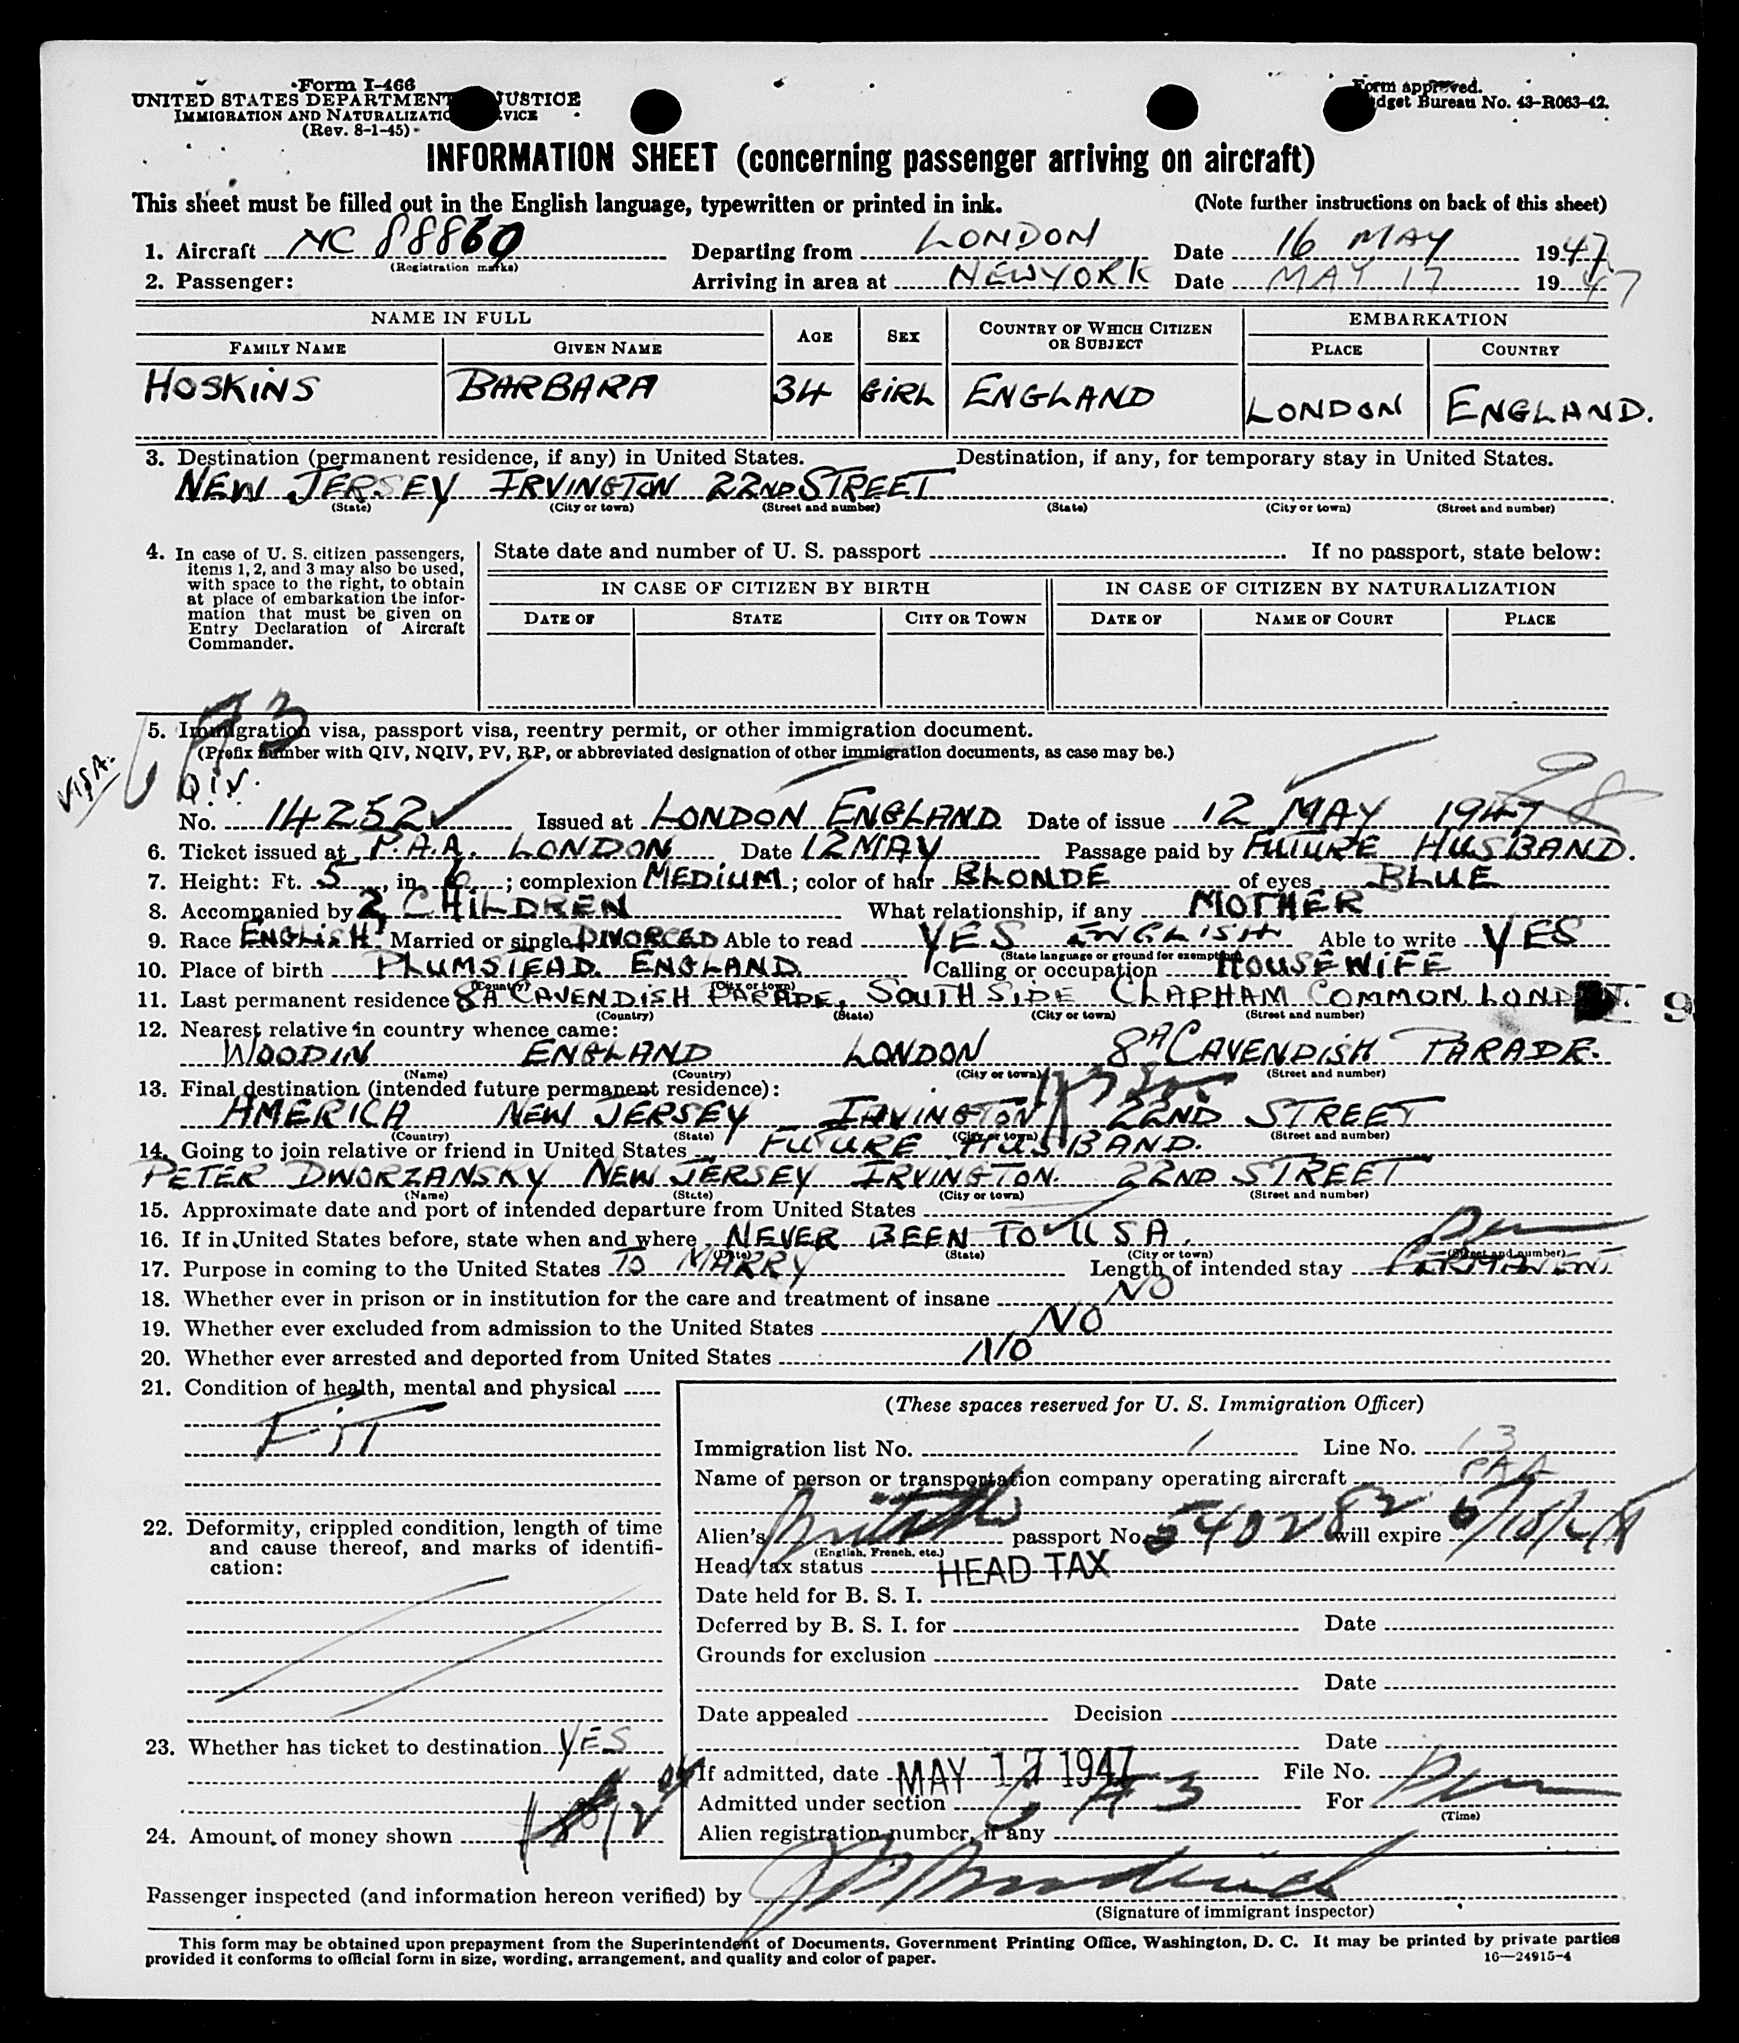 Form I-466
UNITED STATES DEPARTMENT JUSTICE
IMMIGRATION AND NATURALIZATIO VICE
(Rev. 8-1-45)
Form approved.
dget Bureau No. 43-R063-42.
INFORMATION SHEET (concerning passenger arriving on aircraft)
This sheet must be filled out in the English language, typewritten or printed in ink. (Note further instructions on back of this sheet)
1. Aircraft NC 88860 Departing from LONDON Date 16 MAY 1947
(Registration marks)
2. Passenger: Arriving in area at NEW YORK Date MAY 17 1947
NAME IN FULL AGE SEX COUNTRY OF WHICH CITIZEN OR SUBJECT EMBARKATION
FAMILY NAME GIVEN NAME PLACE COUNTRY
HOSKINS BARBARA 34 GIRL ENGLAND LONDON ENGLAND.
3. Destination (permanent residence, if any) in United States. Destination, if any, for temporary stay in United States.
NEW JERSEY IRVINGTON 22ND STREET
(State) (City or town) (Street and number) (State) (City or town) (Street and number)
4. In case of U. S. citizen passengers, items 1, 2, and 3 may also be used, with space to the right, to obtain at place of embarkation the information that must be given on Entry Declaration of Aircraft Commander.
State date and number of U. S. passport If no passport, state below:
IN CASE OF CITIZEN BY BIRTH IN CASE OF CITIZEN BY NATURALIZATION
DATE OF STATE CITY OR TOWN DATE OF NAME OF COURT PLACE
5. Immigration visa, passport visa, reentry permit, or other immigration document.
(Prefix number with QIV, NQIV, PV, RP, or abbreviated designation of other immigration documents, as case may be.)
VISA.
QIV.
No. 14252 Issued at LONDON ENGLAND Date of issue 12 MAY 1947
6. Ticket issued at P.A.A. LONDON Date 12 MAY Passage paid by FUTURE HUSBAND.
7. Height: Ft. 5, in. 6; complexion MEDIUM; color of hair BLONDE of eyes BLUE
8. Accompanied by 2 CHILDREN What relationship, if any MOTHER
9. Race ENGLISH Married or single DIVORCED Able to read YES ENGLISH Able to write YES
(State language or ground for exemption)
10. Place of birth PLUMSTEAD ENGLAND Calling or occupation HOUSEWIFE
(Country) (City or town)
11. Last permanent residence 8A CAVENDISH PARADE, SOUTH SIDE CLAPHAM COMMON LOND
(Country) (State) (City or town) (Street and number)
12. Nearest relative in country whence came:
WOODIN ENGLAND LONDON 8A CAVENDISH PARADE.
(Name) (Country) (City or town) (Street and number)
13. Final destination (intended future permanent residence):
AMERICA NEW JERSEY IRVINGTON 22ND STREET
(Country) (State) (City or town) (Street and number)
14. Going to join relative or friend in United States FUTURE HUSBAND.
PETER DWORZANSKY NEW JERSEY IRVINGTON. 22ND STREET
(Name) (State) (City or town) (Street and number)
15. Approximate date and port of intended departure from United States
16. If in United States before, state when and where NEVER BEEN TO USA.
(Date) (State) (City or town) (Street and number)
17. Purpose in coming to the United States TO MARRY Length of intended stay PERMANENT
18. Whether ever in prison or in institution for the care and treatment of insane NO
19. Whether ever excluded from admission to the United States NO
20. Whether ever arrested and deported from United States NO
21. Condition of health, mental and physical
FIT
22. Deformity, crippled condition, length of time and cause thereof, and marks of identification:
23. Whether has ticket to destination YES
24. Amount of money shown
(These spaces reserved for U. S. Immigration Officer)
Immigration list No. 1 Line No. 13
Name of person or transportation company operating aircraft PAA
Alien's British passport No. 540282 will expire
(English, French, etc.)
Head tax status HEAD TAX
Date held for B. S. I.
Deferred by B. S. I. for Date
Grounds for exclusion
Date
Date appealed Decision
Date
If admitted, date MAY 17 1947 File No.
Admitted under section 6 A 3 For Perm
(Time)
Alien registration number, if any
Passenger inspected (and information hereon verified) by
(Signature of immigrant inspector)
This form may be obtained upon prepayment from the Superintendent of Documents, Government Printing Office, Washington, D. C. It may be printed by private parties
provided it conforms to official form in size, wording, arrangement, and quality and color of paper. 16—24915-4